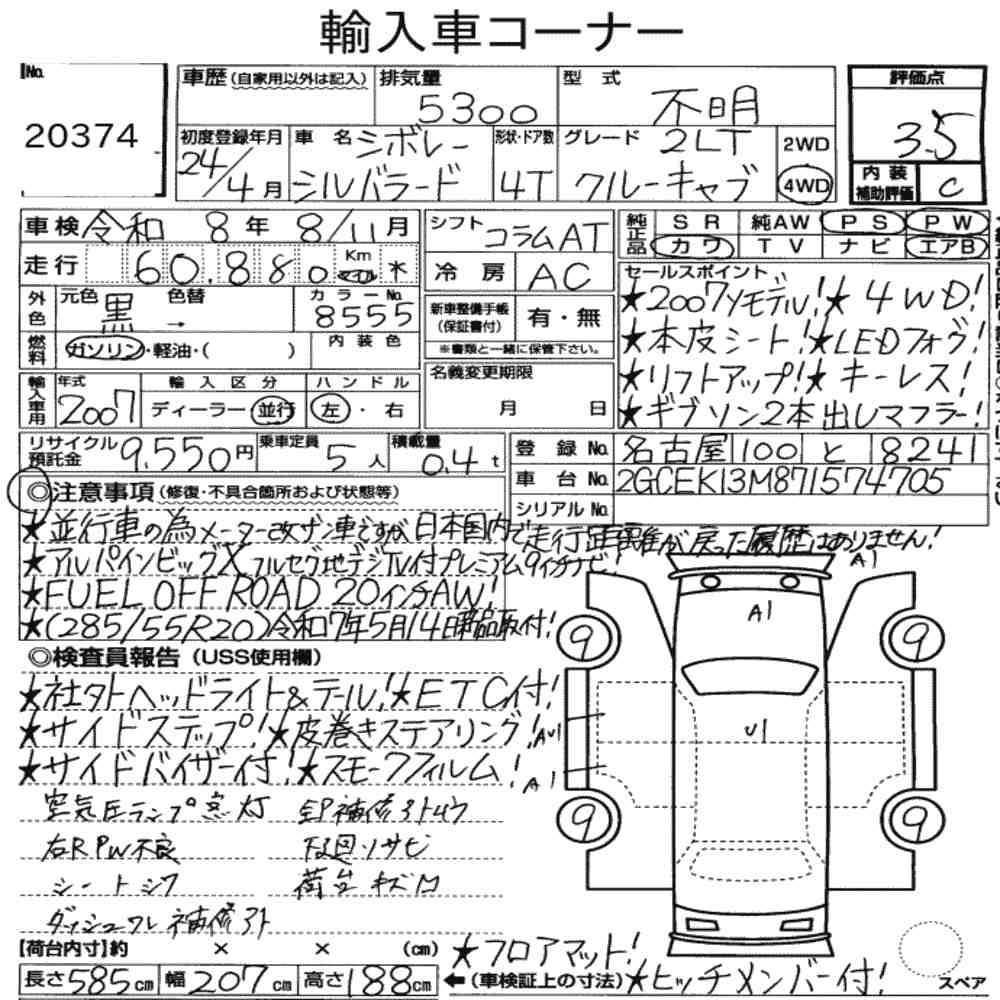 輸入車コーナー
No.
20374
車歴 (自家用以外は記入)
排気量
5300
型 式
不明
評価点
3.5
初度登録年月
24/4月
車 名 シボレー
シルバラード
形状・ドア数
4T
グレード 2LT
クルーキャブ
2WD
4WD
内装補助評価 C
車検 令和 8年 8/11月
シフト コラムAT
純正品 SR 純AW PS PW
カワ TV ナビ エアB
走行 60,880 Km マイル
冷房 AC
セールスポイント
★2007Yモデル!★4WD!
★本皮シート!★LEDフォグ!
★リフトアップ!★キーレス!
★ギブソン2本出しマフラー!
外色 元色 黒 色替 →
カラーNo. 8555
新車整備手帳(保証書付) 有・無
※書類と一緒に保管下さい。
燃料 ガソリン・軽油・( )
内装色
輸入車用 年式 2007
輸入区分 ディーラー 並行
ハンドル 左・右
名義変更期限
月 日
リサイクル預託金 9,550円
乗車定員 5人
積載量 0.4t
登録No. 名古屋 100 と 8241
車台No. 2GCEK13M871574705
シリアルNo.
◎注意事項 (修復・不具合箇所および状態等)
★並行車の為メーター改ザン車ですが日本国内で走行距離が戻った履歴はありません!
★アルパインビッグXフルセグ地デジTV付プレミアム9インチナビ!
★FUEL OFF ROAD 20インチAW!
★(285/55R20)令和7年5月14日新品取付!
◎検査員報告 (USS使用欄)
★社外ヘッドライト&テール!★ETC付!
★サイドステップ!★皮巻きステアリング!
★サイドバイザー付!★スモークフィルム!
空気圧ランプ点灯
右RPW不良
下廻りサビ
シートシワ
荷台キズ凹
ダッシュワレ補修アト
A1
A1
9
9
U1
AU1
A1
9
9
【荷台内寸】約 × × (cm)
長さ585cm 幅207cm 高さ188cm
(車検証上の寸法)
★フロアマット!
★ヒッチメンバー付!
スペア